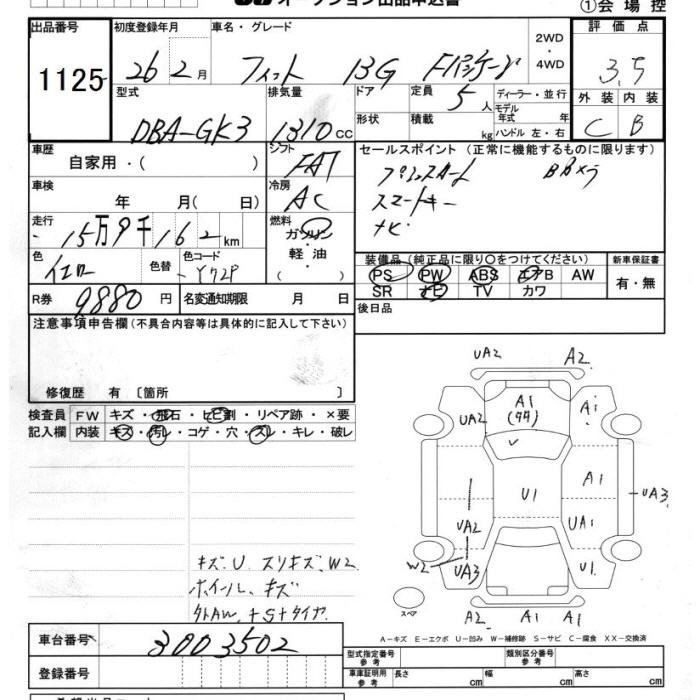 オークション出品申込書
①会場控
出品番号 初度登録年月 車名・グレード 2WD・4WD 評価点
1125 26 2月 フィット 13G Fパッケージ 3.5
型式 排気量 ドア 定員 5人 ディーラー・並行 外装 内装
DBA-GK3 1310cc 形状 積載 kg モデル年式 年 ハンドル 左・右 C B
車歴 自家用・( ) シフト FAT セールスポイント (正常に機能するものに限ります)
車検 年 月( 日) 冷房 AC
スマートキー
ナビ
走行 15万9千162km 燃料 ガソリン 軽・油 ( )
色 イエロー 色替 色コード Y72P
装備品(純正品に限り○をつけてください) 新車保証書
PS PW ABS エアB AW 有・無
SR ナビ TV カワ
R券 9,880円 名変通知期限 月 日
後日品
注意事項申告欄(不具合内容等は具体的に記入して下さい)
修復歴 有 [箇所 ]
検査員 FW キズ・飛石・ヒビ割・リペア跡・×要
記入欄 内装 キズ・汚レ・コゲ・穴・スレ・キレ・破レ
UA2 A2
A1 (44)
UA2 A1
U1 A1 UA3
UA2 UA1
W2 UA3 U1
A2 A1 A1
スペア
キズ、U スリキズ、W2
ホイール、キズ
外AW、+Sタイヤ
A-キズ E-エクボ U-凹み W-補修跡 S-サビ C-腐食 XX-交換済
車台番号 3003502
登録番号
型式指定番号 参考 類別区分番号 参考
車庫証明用 参考 長さ cm 幅 cm 高さ cm